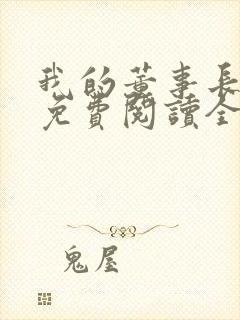 我的董事長
免費閱讀全
鬼屋